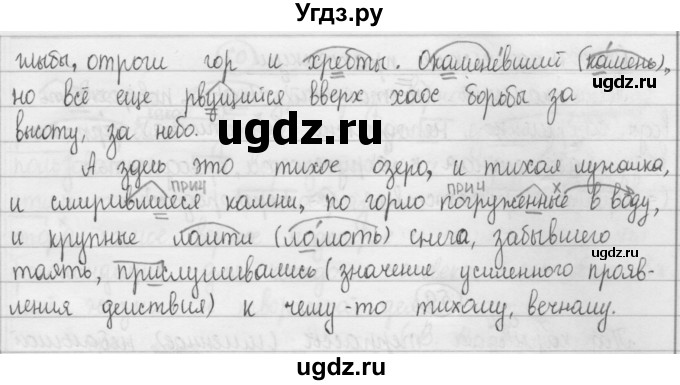 Угдз.ру
глыбы, отроги гор и хребты. Окаменевший (ка́мень),
но всё ещё рвущийся вверх хаос борьбы за
высоту, за небо.
ugdz.ru
ugdz.ru
А здесь это тихое озеро, и тихая лужайка,
прич прич х
и смирившиеся камни, по горло погруженные в воду,
и крупные ломти (ло́моть) снега, забывшего
таять, прислушивались (значение усиленного прояв-
ления действия) к чему-то тихому, вечному.
ugdz.ru
ugdz.ru